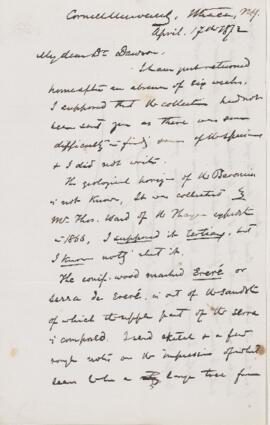 Cornell University, Ithaca, N.Y.
April 17th 1872
My dear Dr Dawson.
I have just returned
home after an absence of six weeks.
I supposed that the collection had not
been sent you as there was some
difficulty in finding some of the specimens
& I did not write.
The geological horizon of the
is not known, It was collected by
Mr. Thos. Ward of the Thayer expedt
in 1866, I supposed it tertiary, but
I know nothg abt it.
The conif. wood marked Ereré or
serra de Ereré, is out of the sandst
of which the upper part of the serra
is composed. I send sketch & a few
rough notes on the impression of what
seem to be a large tree fern